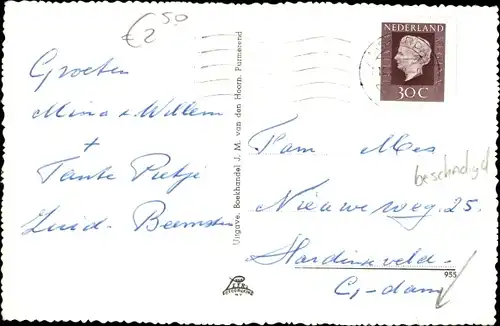 € 2,50
Groeten
Mina & Willem
+
Tante Pietje
Zuid-Beemster
Uitgave. Boekhandel J. M. van den Hoorn, Purmerend
NEDERLAND
30 C
Fam Mes
beschadigd
Nieuweweg. 25.
Hardinxveld-
G-dam
955